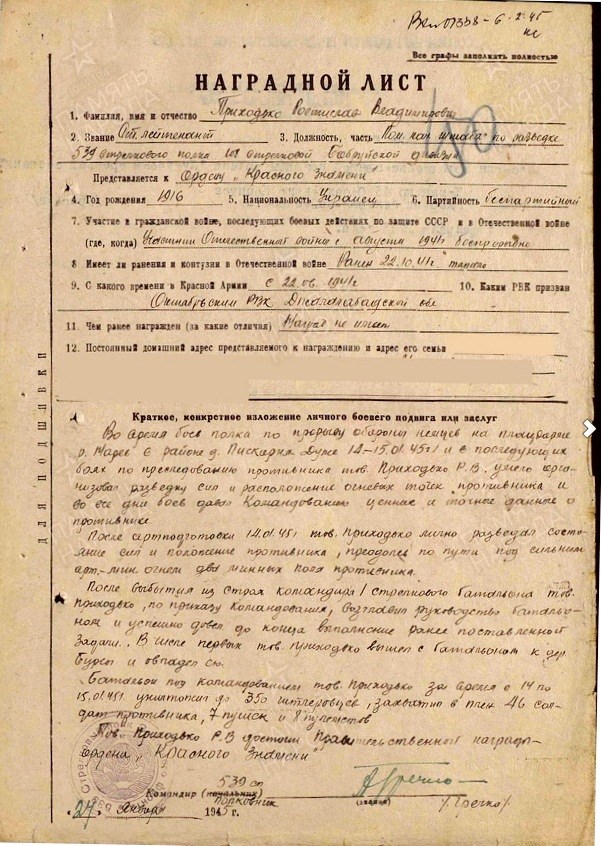 Вх. № 07338 - 6.2.45
Все графы заполнять полностью
НАГРАДНОЙ ЛИСТ
1. Фамилия, имя и отчество Приходько Ростислав Владимирович
2. Звание Ст. лейтенант 3. Должность, часть Пом. нач. штаба по разведке
539 стрелкового полка стрелковой дивизии
Представляется к Ордену „Красного Знамени"
4. Год рождения 1916 5. Национальность Украинец 6. Партийность беспартийный
7. Участие в гражданской войне, последующих боевых действиях по защите СССР и в Отечественной войне
(где, когда) Участник Отечественной войны с августа 1941г беспрерывно
8 Имеет ли ранения и контузии в Отечественной войне Ранен 22.10.41г
9. С какого времени в Красной Армии с 22.06.1941г 10. Каким РВК призван
Октябрьским РВК Джалалабадской обл
11. Чем ранее награжден (за какие отличия) Наград не имеет
12. Постоянный домашний адрес представляемого к награждению и адрес его семьи
ДЛЯ ПОДШИВКИ
Краткое, конкретное изложение личного боевого подвига или заслуг
Во время боев полка по прорыву обороны немцев на плацдарме
р. Нарев в районе д. Дуже 14-15.01.45г и в последующих
боях по преследованию противника тов. Приходько Р.В. умело орга-
низовал разведку сил и расположение огневых точек противника и
во все дни боев давал Командованию ценные и точные данные о
противнике.
После артподготовки 14.01.45г тов. Приходько лично разведал состо-
яние сил и положение противника, преодолев по пути под сильным
арт.-мин. огнем два минных поля противника.
После выбытия из строя командира 1 стрелкового батальона тов.
Приходько, по приказу Командования, возглавил руководство батальо-
ном и успешно довел до конца выполнение ранее поставленной
задачи. В числе первых тов. Приходько вышел с батальоном к дер.
и овладел ею.
Батальон под командованием тов. Приходько за время с 14 по
15.01.45г. уничтожил до 350 гитлеровцев, захватил в плен 46 сол-
дат противника, 7 пушек и 8 пулеметов
Тов. Приходько Р.В достоин Правительственной награды
ордена „Красного Знамени"
Командир (начальник) 539 сп
Полковник
(звание)
/Гречко/
„27" Января 1945 г.